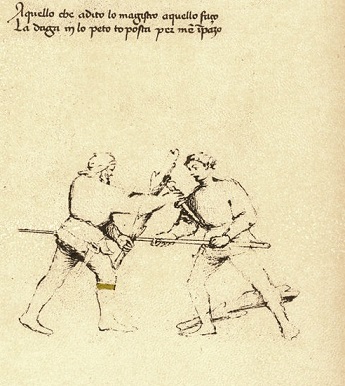 Aquello che adito lo magistro aquello façο
La daga in lo peto to posta per mē īpazo